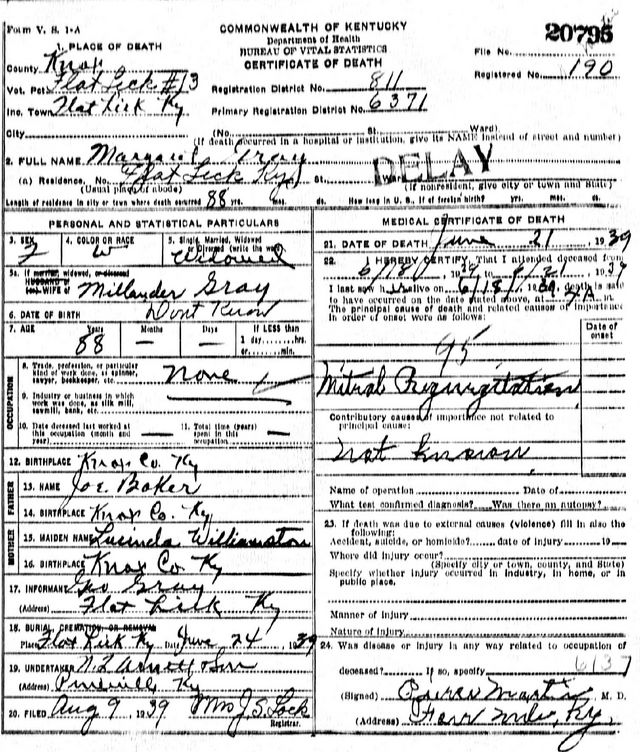 Form V. S. 1-A
COMMONWEALTH OF KENTUCKY
Department of Health
BUREAU OF VITAL STATISTICS
CERTIFICATE OF DEATH
20795
File No.
Registered No. 190
1. PLACE OF DEATH
County Knox
Vot. Pct Flat Lick #13
Inc. Town Flat Lick Ky
Registration District No. 811
Primary Registration District No. 6371
City (No. St. Ward)
(If death occurred in a hospital or institution, give its NAME instead of street and number)
2. FULL NAME Gray
DELAY
(a) Residence, No. Flat Lick Ky St.
(Usual place of abode) (If nonresident, give city or town and State)
Length of residence in city or town where death occurred 88 yrs. mos. ds. How long in U. S., if of foreign birth? yrs. mos. ds.
PERSONAL AND STATISTICAL PARTICULARS
3. SEX F
4. COLOR OR RACE W
5. Single, Married, Widowed or Divorced (write the word) Widowed
5a. If married, widowed, or divorced
HUSBAND of
(or) WIFE of Millander Gray
6. DATE OF BIRTH Dont Know
7. AGE Years Months Days If LESS than
88 — — 1 day, hrs.
or min.
OCCUPATION
8. Trade, profession, or particular kind of work done, as spinner, sawyer, bookkeeper, etc. None
9. Industry or business in which work was done, as silk mill, sawmill, bank, etc.
10. Date deceased last worked at this occupation (month and year) —
11. Total time (years) spent in this occupation —
12. BIRTHPLACE Knox Co. Ky
FATHER
13. NAME Joe Baker
14. BIRTHPLACE Knox Co. Ky
MOTHER
15. MAIDEN NAME Lucinda Williamston
16. BIRTHPLACE Knox Co Ky
17. INFORMANT Geo Gray
(Address) Flat Lick Ky
18. BURIAL CREMATION OR REMOVAL
Place Flat Lick Ky Date June 24 1939
19. UNDERTAKER
(Address) Pineville Ky
20. FILED Aug 9 1939 Mrs J. S. Lock
Registrar.
MEDICAL CERTIFICATE OF DEATH
21. DATE OF DEATH June 21 1939
22. I HEREBY CERTIFY, That I attended deceased from
6/18 1939 to 6/21 1939
I last saw h alive on 6/18/ 1939 death is said
to have occurred on the date stated above, at
The principal cause of death and related causes of importance in order of onset were as follows:
Date of onset
95
Mitral Regurgitation
Contributory causes of importance not related to principal cause:
not known
Name of operation Date of
What test confirmed diagnosis? Was there an autopsy?
23. If death was due to external causes (violence) fill in also the following:
Accident, suicide, or homicide? date of injury 19
Where did injury occur?
(Specify city or town, county, and State)
Specify whether injury occurred in industry, in home, or in public place.
Manner of injury
Nature of injury
24. Was disease or injury in any way related to occupation of
deceased? If so, specify 6137
(Signed) M. D.
(Address) Ky.